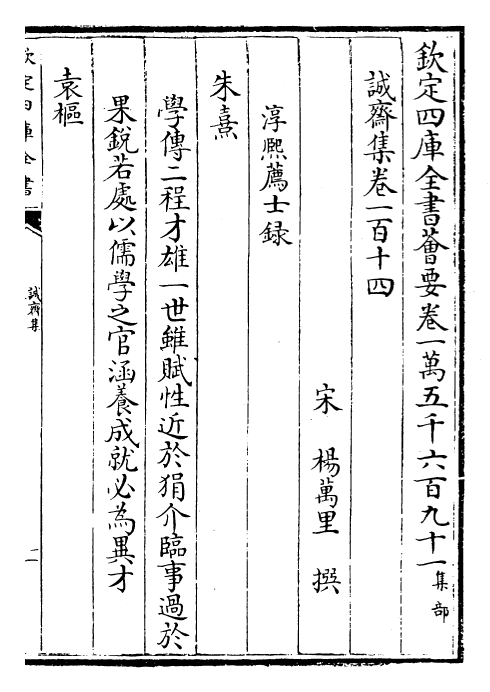 欽定四庫全書薈要卷一萬五千六百九十一集部
誠齋集卷一百十四
宋 楊萬里 撰
淳熙薦士録
朱熹
學傳二程才雄一世雖賦性近於狷介臨事過於
果銳若處以儒學之官涵養成就必為異才
袁樞
欽定四庫全書
誠齋集
二